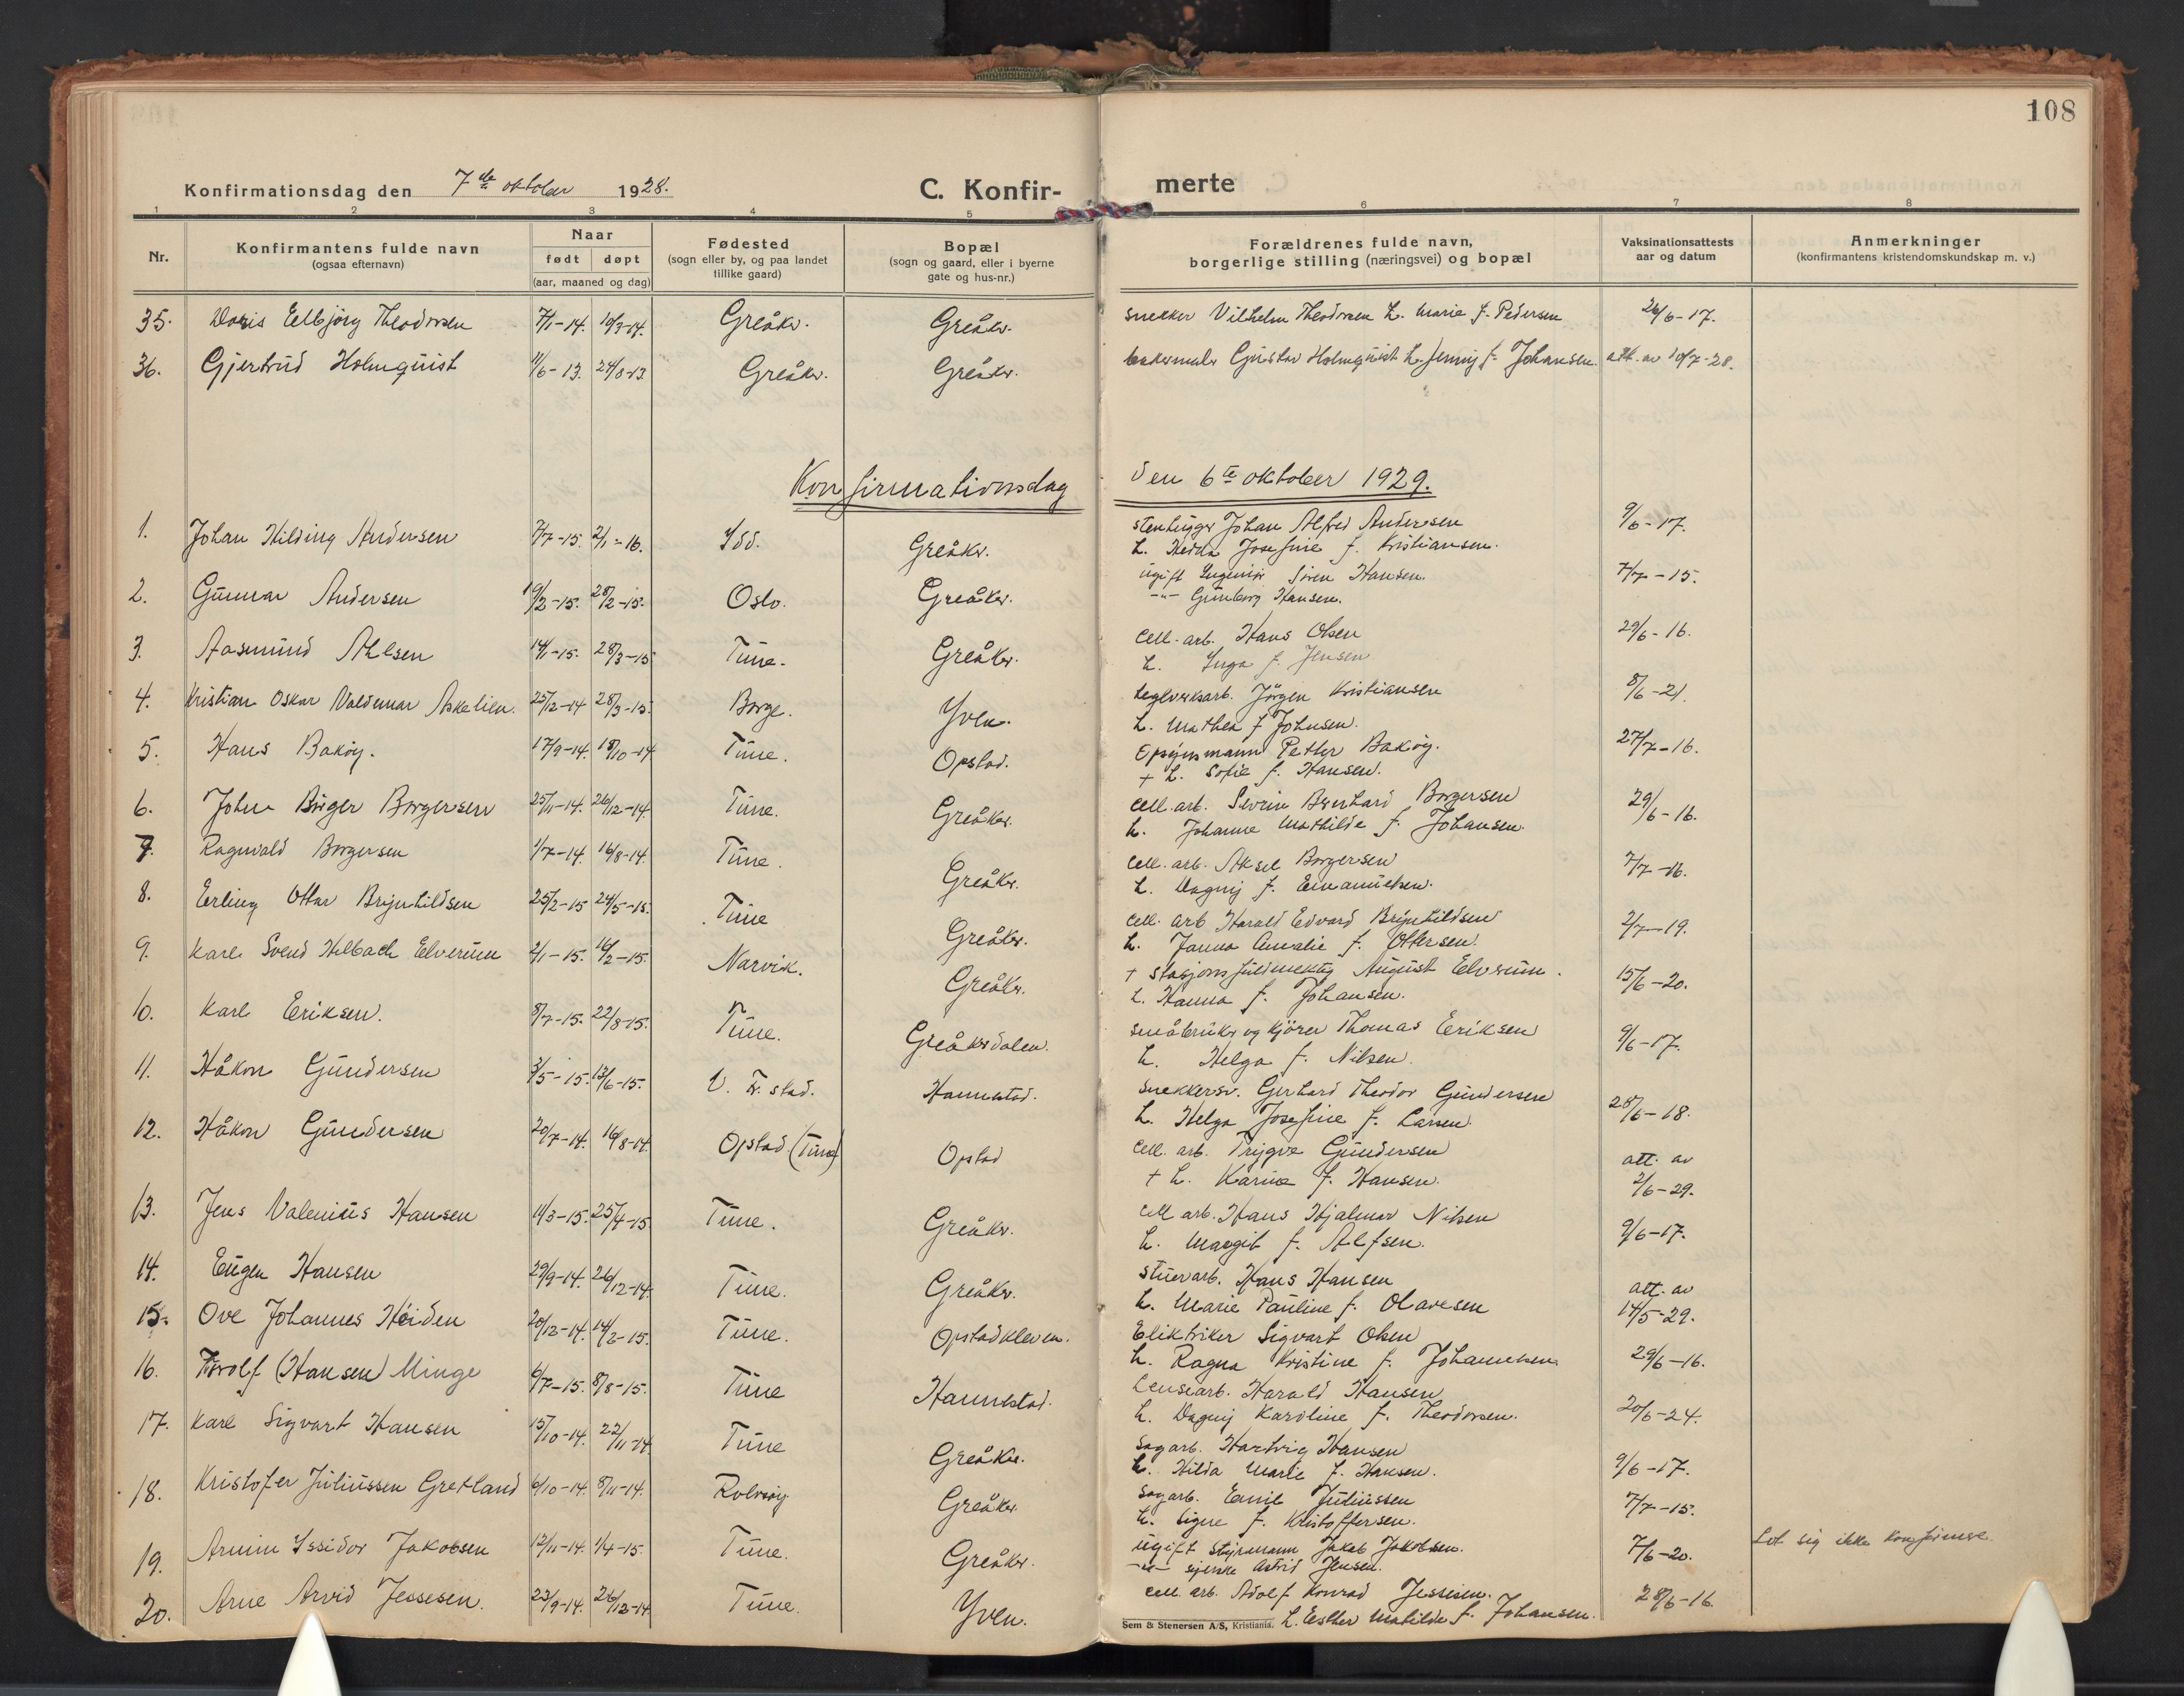 108
Konfirmationsdag den 7de oktober 1928.
C. Konfir- merte
1 2 3 4 5 6 7 8
Nr.
Konfirmantens fulde navn
(ogsaa efternavn)
Naar
født døpt
(aar, maaned og dag)
Fødested
(sogn eller by, og paa landet
tillike gaard)
Bopæl
(sogn og gaard, eller i byerne
gate og hus-nr.)
Forældrenes fulde navn,
borgerlige stilling (næringsvei) og bopæl
Vaksinationsattests
aar og datum
Anmerkninger
(konfirmantens kristendomskundskap m. v.)
35. Doris Ellbjörg Theodorsen 7/1-14. Greåkr. Greåkr. snekker Vilhelm Theodorsen h. Marie f. Pedersen 26/6-17.
36. Gjertrud Holmquist 11/6-13. 24/8-13. Greåkr. Greåkr. Gustav Holmquist h. Jenny f. Johansen. att. av 10/7-28.
Konfirmationsdag den 6te oktober 1929.
1. Johan Hilding Andersen 7/7-15. 2/1-16. Idd. Greåkr. stenhugger Johan Alfred Andersen 9/6-17.
h. Hedda Josefine f. Kristiansen.
2. Gunnar Andersen 19/2-15. 28/2-15. Oslo. Greåkr. ugift Ingeniör Sören Hansen. 7/7-15.
-"- Gunborg Hansen.
3. Aasmund Ahlsen 14/1-15. 28/3-15 Tune. Greåkr. cell. arb. Hans Olsen 29/6-16.
h. Inga f. Jensen
4. Kristian Oskar Valdemar Askelien. 25/12-14 28/3-15. Borge. Yven. teglverksarb. Jörgen Kristiansen 8/6-21.
h. Mathea f. Johnsen.
5. Hans Baköy. 17/9-14. 18/10-14 Tune. Opstad. Opsynsmann Petter Baköy. 27/7-16.
+ h. Sofie f. Hansen.
6. John Birger Borgersen 25/11-14. 26/12-14. Tune. Greåkr. cell. arb. Severin Bernhard Borgersen 29/6-16.
h. Johanne Mathilde f. Johansen.
7. Ragnvald Borgersen 1/7-14. 16/8-14. Tune. Greåkr. cell. arb. Aksel Borgersen 7/7-16.
h. Dagny f. Emanuelsen.
8. Erling Ottar Brynhildsen 25/2-15 24/5-15. Tune Greåkr. cell. arb Harald Edvard Brynhildsen 2/7-19.
h. Janna Amalie f. Ottersen.
9. Karl Svend Helbach Elverum 2/1-15. 16/2-15. Narvik. Greåkr. + stasjonsfuldmektig August Elverum. 15/6-20.
h. Hanna f. Johansen.
10. Karl Eriksen. 8/7-15. 22/8-15. Tune. Greåkrdalen. småbruker og kjörer Thomas Eriksen 9/6-17.
h. Helga f. Nilsen.
11. Håkon Gundersen 3/5-15. 13/6-15. V. Fr. stad. Hannestad. snekkersv. Gerhard Theodor Gundersen 28/6-18.
h. Helga Josefine f. Larsen.
12. Håkon Gundersen 20/7-14. 16/8-14. Opstad (Tune) Opstad cell. arb. Trygve Gundersen att. av
+ h. Karine f. Hansen. 2/6-29.
13. Jens Valenius Hansen 11/3-15. 25/4-15 Tune. Greåkr. cell arb. Hans Hjalmar Nilsen 9/6-17.
h. Margit f. Alfsen.
14. Eugen Hansen 29/9-14. 26/12-14. Tune. Greåkr. stuerarb. Hans Hansen att. av
h. Marie Pauline f. Olavesen 14/5-29.
15. Ove Johannes Heiden 20/12-14. 14/2-15. Tune. Opstadkleven. Elektriker Sigvart Olsen 29/6-16.
h. Ragna Kristine f. Johannesen.
16. Torolf (Hansen) Minge 6/7-15. 8/8-15. Tune Hannestad. Lensearb. Harald Hansen 20/6-24.
h. Dagny Karoline f. Theodorsen.
17. Karl Sigvart Hansen 15/10-14. 22/11-14. Tune Greåkr. Sagarb. Hartvig Hansen 9/6-17.
h. Hilda Marie f. Hansen.
18. Kristofer Juliussen Gretland 6/10-14. 8/11-14. Rolvsöy Greåkr. Sagarb. Emil Juliussen 7/7-15.
h. Signe f. Kristoffersen.
19. Armin Issidor Jakobsen 12/11-14. 1/4-15. Tune. Greåkr. ugift styrmann Jakob Jakobsen. 7/6-20. Lot sig ikke konfirmere
-"- Astrid Jensen.
20. Arne Arvid Jessesen. 23/9-14. 26/12-14 Tune. Yven. cell. arb. Adolf Konrad Jessesen. 28/6-16
h. Esther Matilde f. Johansen.
Sem & Stenersen A/S, Kristiania.